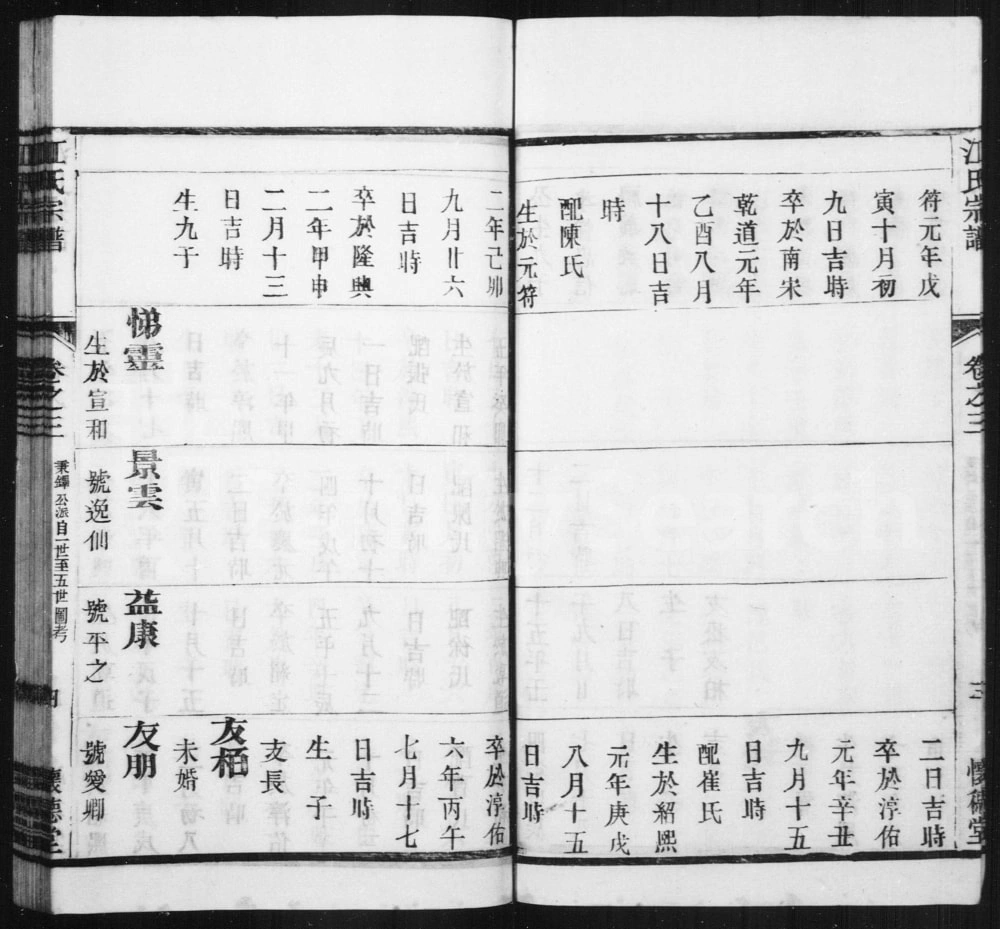 江氏宗譜
卷之三
三
懷德堂
符元年戊
寅十月初
九日吉時
卒於南宋
乾道元年
乙酉八月
十八日吉
時
配陳氏
生於元符
二日吉時
卒於淳佑
元年辛丑
九月十五
日吉時
配崔氏
生於紹熙
元年庚戌
八月十五
日吉時
二年己卯
九月廿六
日吉時
卒於隆興
二年甲申
二月十三
日吉時
生九于
悌靈
生於宣和
景雲
號逸仙
益康
號平之
卒於淳佑
六年丙午
七月十七
日吉時
生一子
支長
友栢
未婚
友朋
號愛卿
江氏宗譜
卷之三
秉鐸公派自一世至五世圖考
四
懷德堂